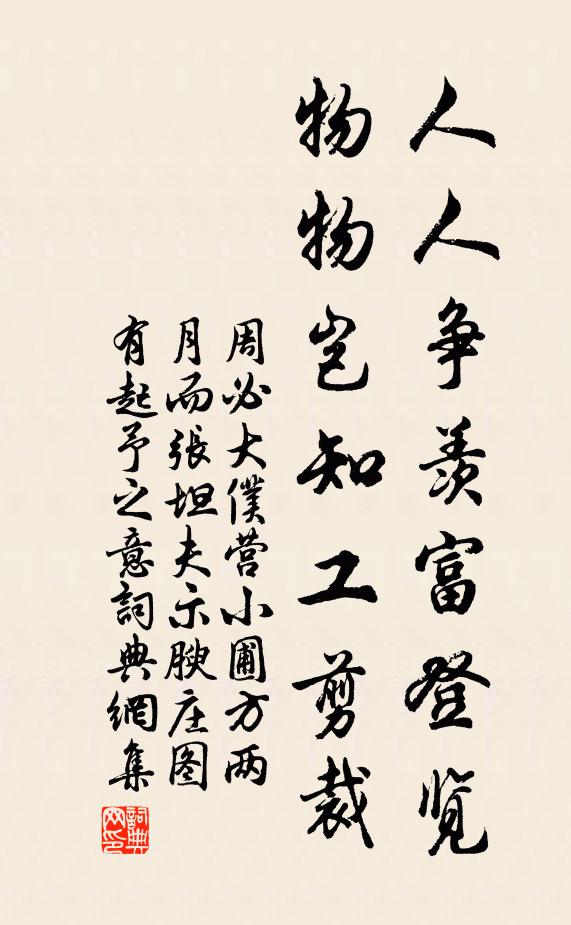 人人争羡富登览
物物岂知工剪裁
周必大僕营小圃方两
月而張坦夫示腴庄图
有起予之意詞典網集
詞典
网印